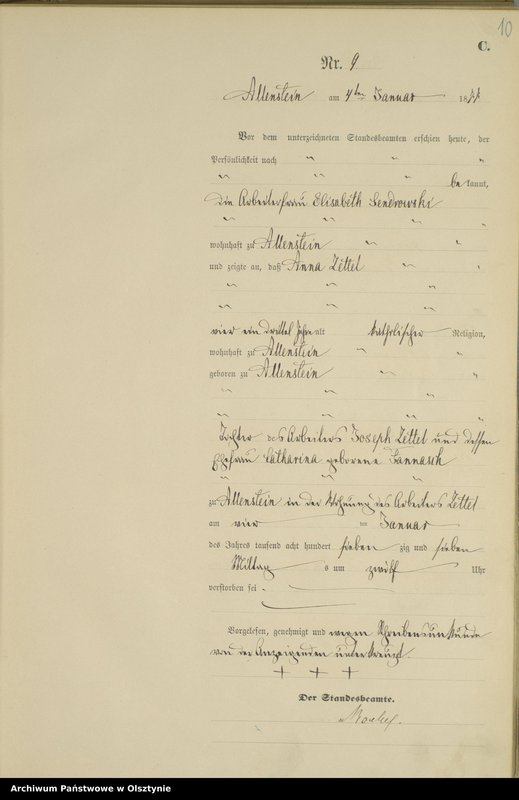 10
C.
Nr. 9
Allenstein am 4ten Januar 1877
Vor dem unterzeichneten Standesbeamten erschien heute, der
Persönlichkeit nach
be kannt,
die Arbeiterfrau Elisabeth Sendrowski
wohnhaft zu Allenstein
und zeigte an, daß Anna Zettel
vier ein drittel Jahre alt katholischer Religion,
wohnhaft zu Allenstein
geboren zu Allenstein
Tochter des Arbeiters Joseph Zettel und dessen
Ehefrau Catharina geborene
zu Allenstein in der Wohnung des Arbeiters Zettel
am vier ten Januar
des Jahres tausend acht hundert sieben zig und sieben
Mittag s um zwölf Uhr
verstorben sei.
Vorgelesen, genehmigt und wegen Schreibensunkunde
von der Anzeigenden unterkreuzt.
+ + +
Der Standesbeamte.
Archiwum Państwowe w Olsztynie